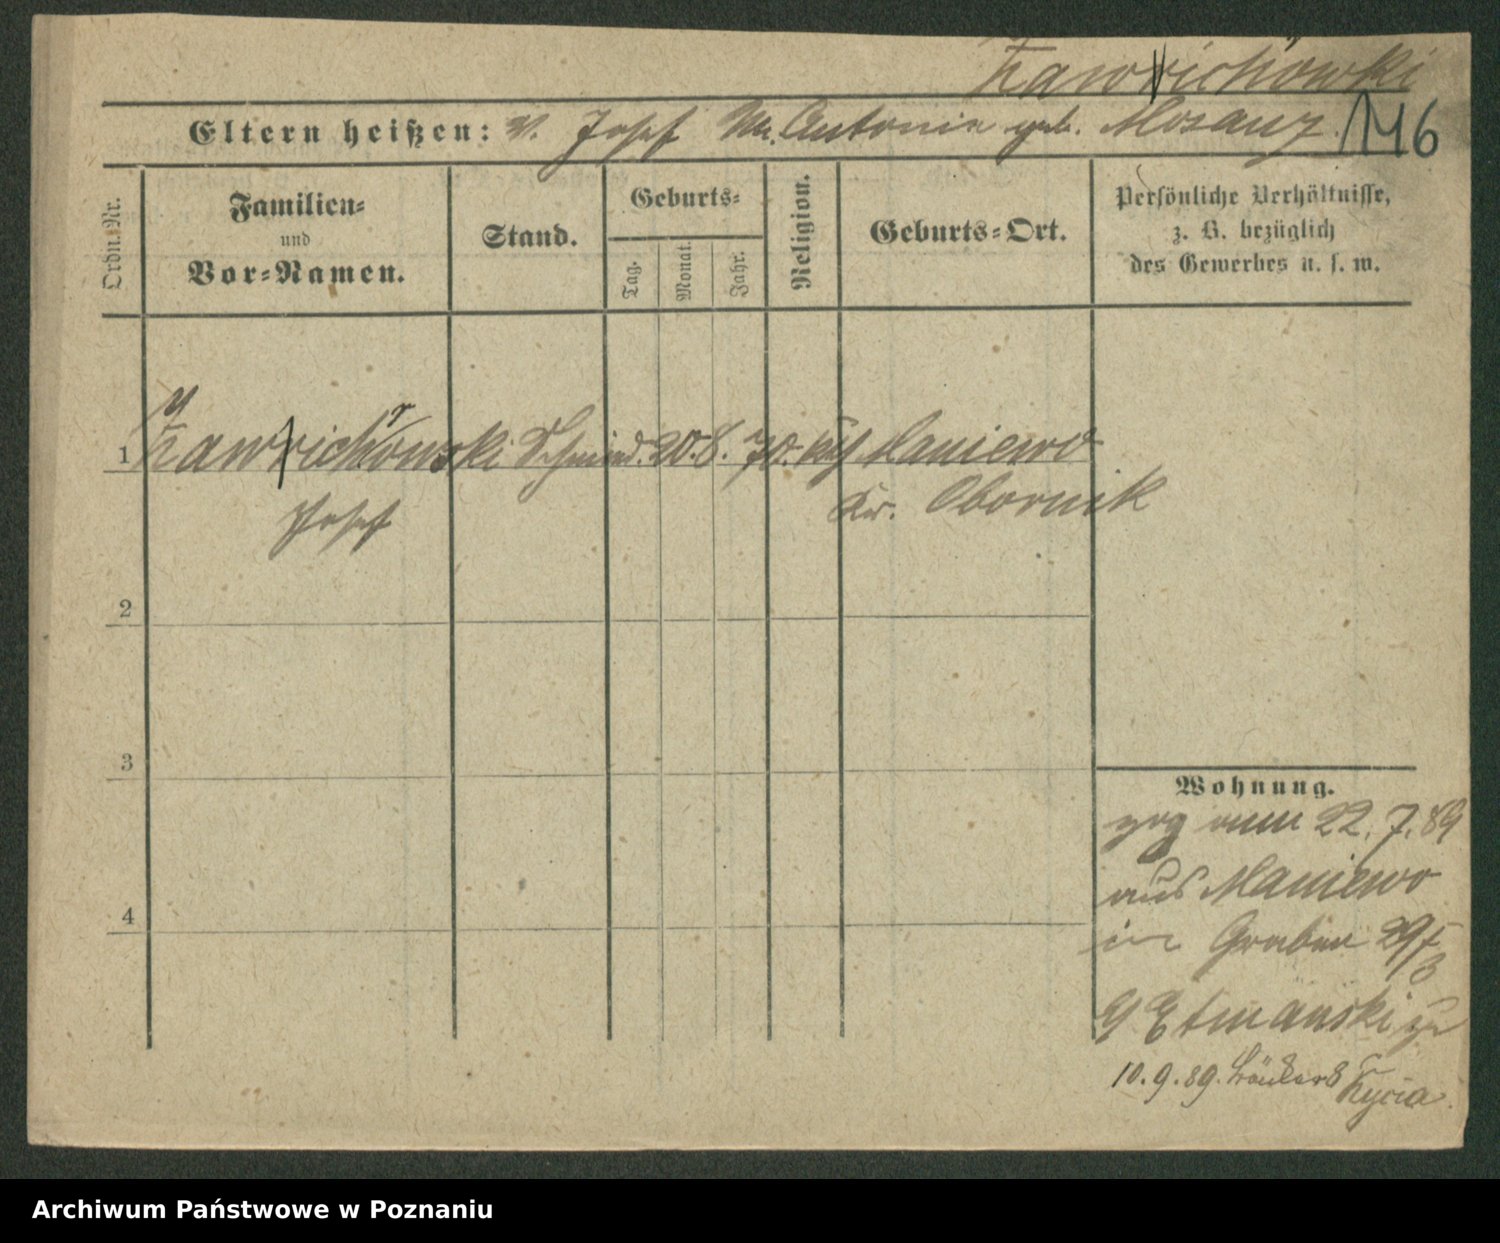 Kawrichowski
Eltern heißen: V. Josef M. Antonie geb. Mosanz.
146
Ordn. Nr.
Familien-
und
Vor-Namen.
Stand.
Geburts-
Tag.
Monat.
Jahr.
Religion.
Geburts-Ort.
Persönliche Verhältnisse,
z. B. bezüglich
des Gewerbes u. s. w.
1 Kawrichowski Schmied. 20. 8. 70. kth Maniewo
Josef Kr. Obornik
2
3
4
Wohnung.
zog vom 22. 7. 89
aus Maniewo
in Graben 29/3
Etmanski zu
10. 9. 89.
Archiwum Państwowe w Poznaniu